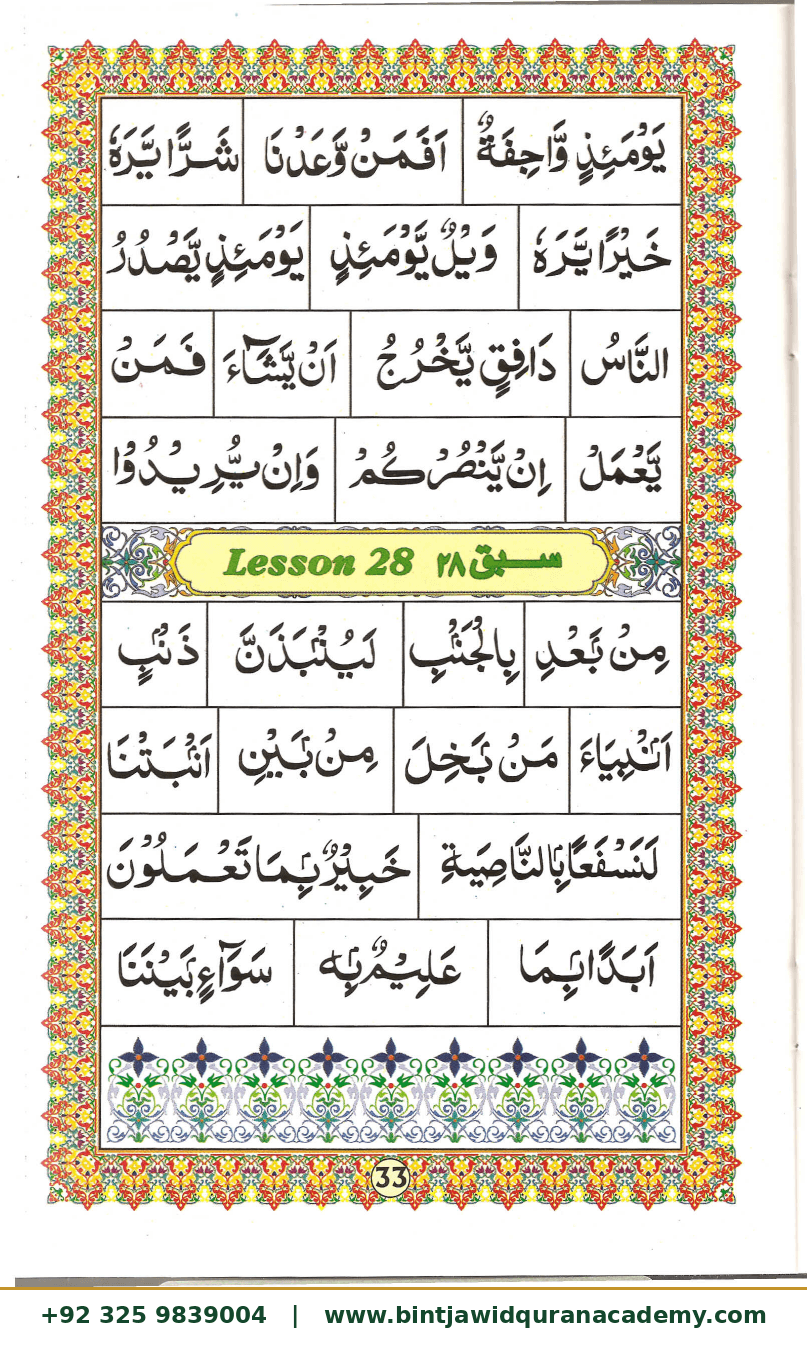 يَوْمَئِذٍ وَّاجِفَةٌ اَفَمَنْ وَّعَدْنَا شَرًّا يَّرَهٗ
خَيْرًا يَّرَهٗ وَيْلٌ يَّوْمَئِذٍ يَوْمَئِذٍ يَّصْدُرُ
النَّاسُ دَافِقٍ يَّخْرُجُ اَنْ يَّشَآءَ فَمَنْ
يَّعْمَلْ اِنْ يَّنْصُرْكُمْ وَاِنْ يُّرِيْدُوْا
Lesson 28 سبق ۲۸
مِنْۢ بَعْدِ بِالْجَنْۢبِ لَيُنْۢبَذَنَّ ذَنْۢبٍ
اَنْۢبِيَاءَ مَنْۢ بَخِلَ مِنْۢ بَيْنِ اَنْۢبَتْنَا
لَنَسْفَعًاۢ بِالنَّاصِيَةِ خَبِيْرٌۢ بِمَا تَعْمَلُوْنَ
اَبَدًاۢ بِمَا عَلِيْمٌۢ بِهٖ سَوَآءٍۢ بَيْنَنَا
33
+92 325 9839004 | www.bintjawidquranacademy.com